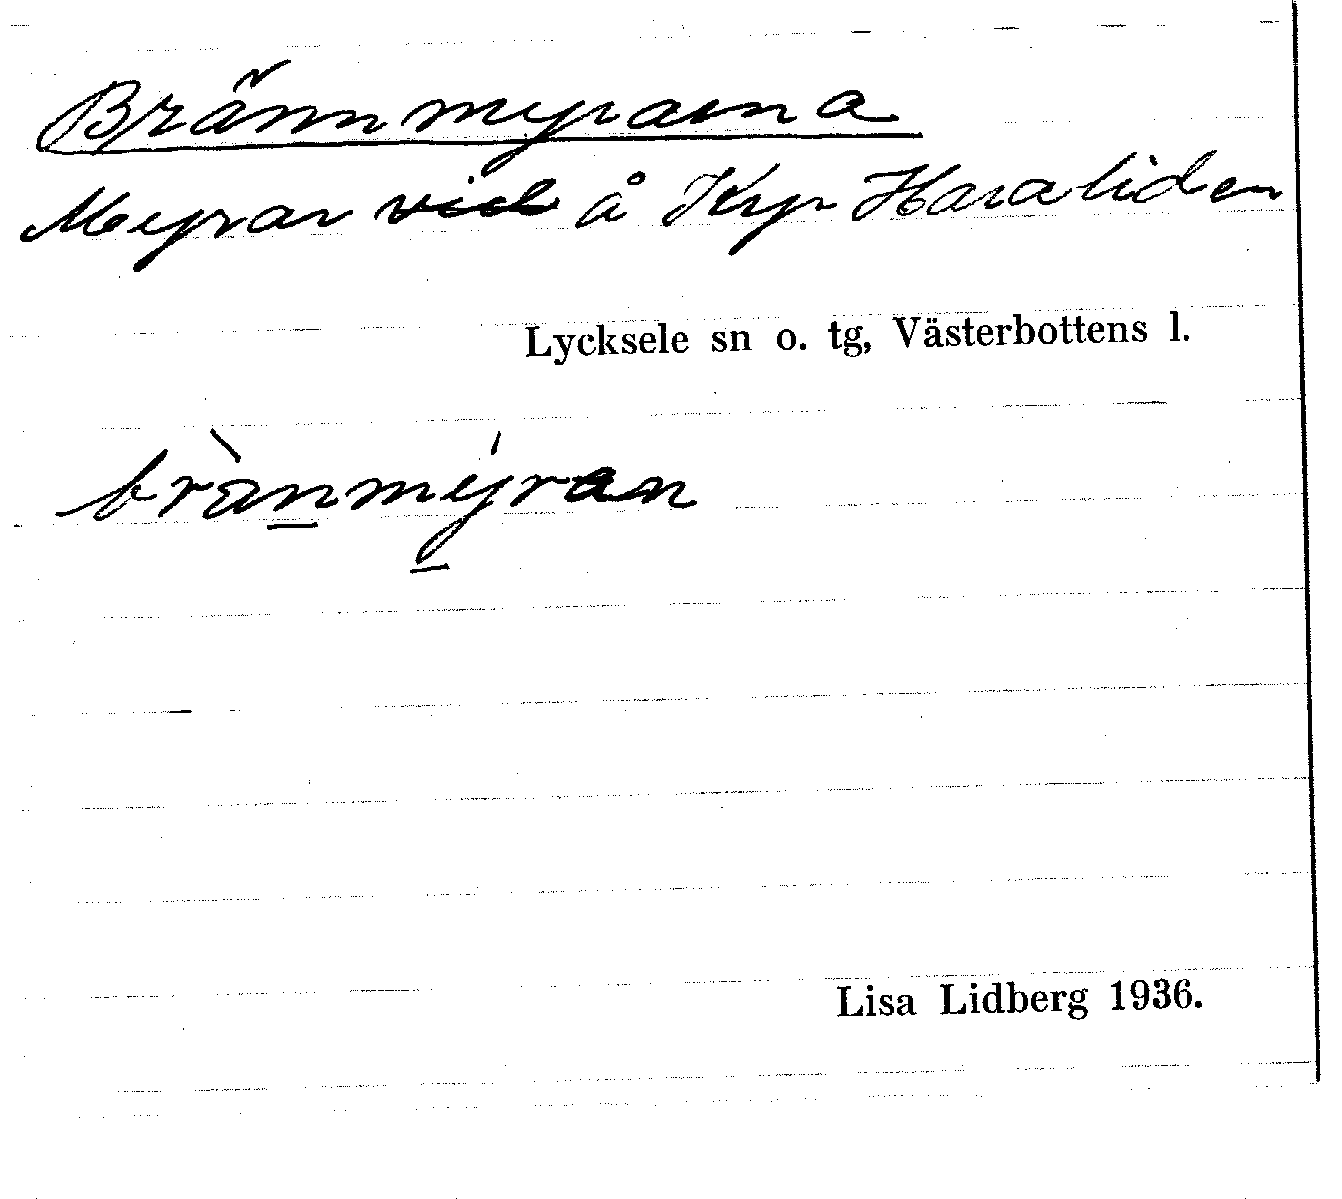 Brännmyrarna
Myrar vid å Kyr Haraliden
Lycksele sn o. tg, Västerbottens l.
brànmýran
Lisa Lidberg 1936.